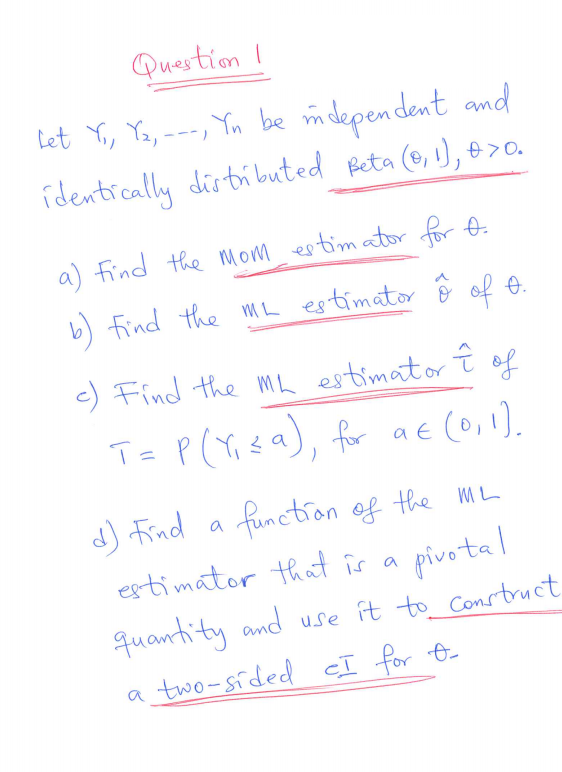 Question 1
Let Y₁, Y₂, ---, Yn be independent and
identically distributed Beta (θ, 1), θ>0.
a) Find the MOM estimator for θ.
b) Find the ML estimator θ̂ of θ.
c) Find the ML estimator τ̂ of
τ = P(Y₁ ≤ a), for a ∈ (0, 1].
d) Find a function of the ML
estimator that is a pivotal
quantity and use it to construct
a two-sided CI for θ.